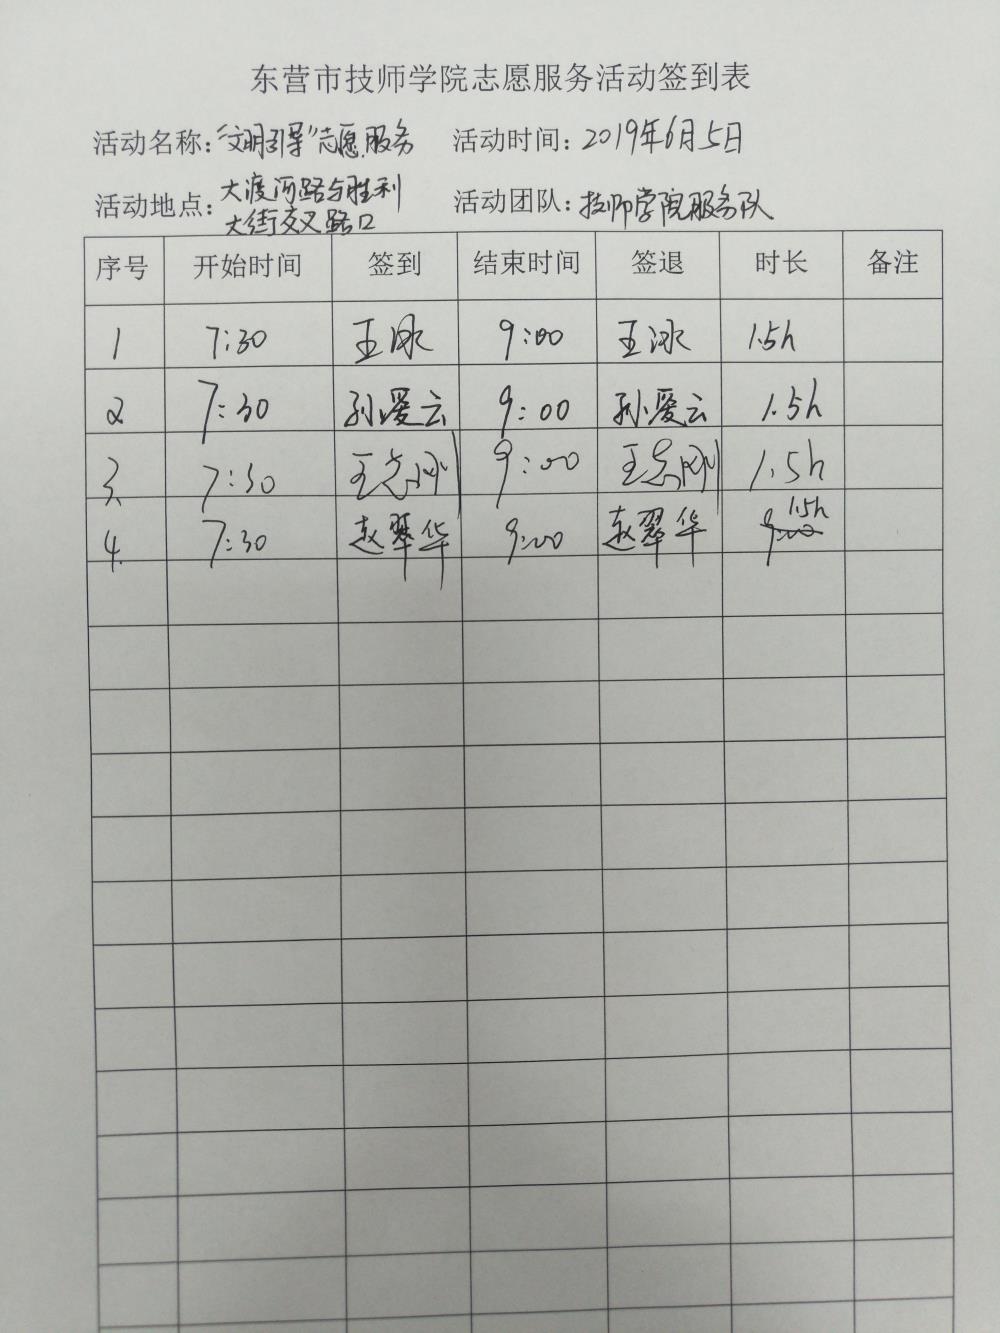 东营市技师学院志愿服务活动签到表
活动名称：“文明引导”志愿服务 活动时间：2019年6月5日
活动地点：大渡河路与胜利 活动团队：技师学院服务队
大街交叉路口
序号 开始时间 签到 结束时间 签退 时长 备注
1 7:30 王冰 9:00 王冰 1.5h
2 7:30 孙爱云 9:00 孙爱云 1.5h
3. 7:30 王志刚 9:00 王志刚 1.5h
4. 7:30 赵翠华 9:00 赵翠华 9:00 1.5h